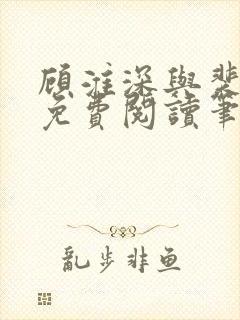 顾淮深与裴
免费阅读笔
乱步非鱼